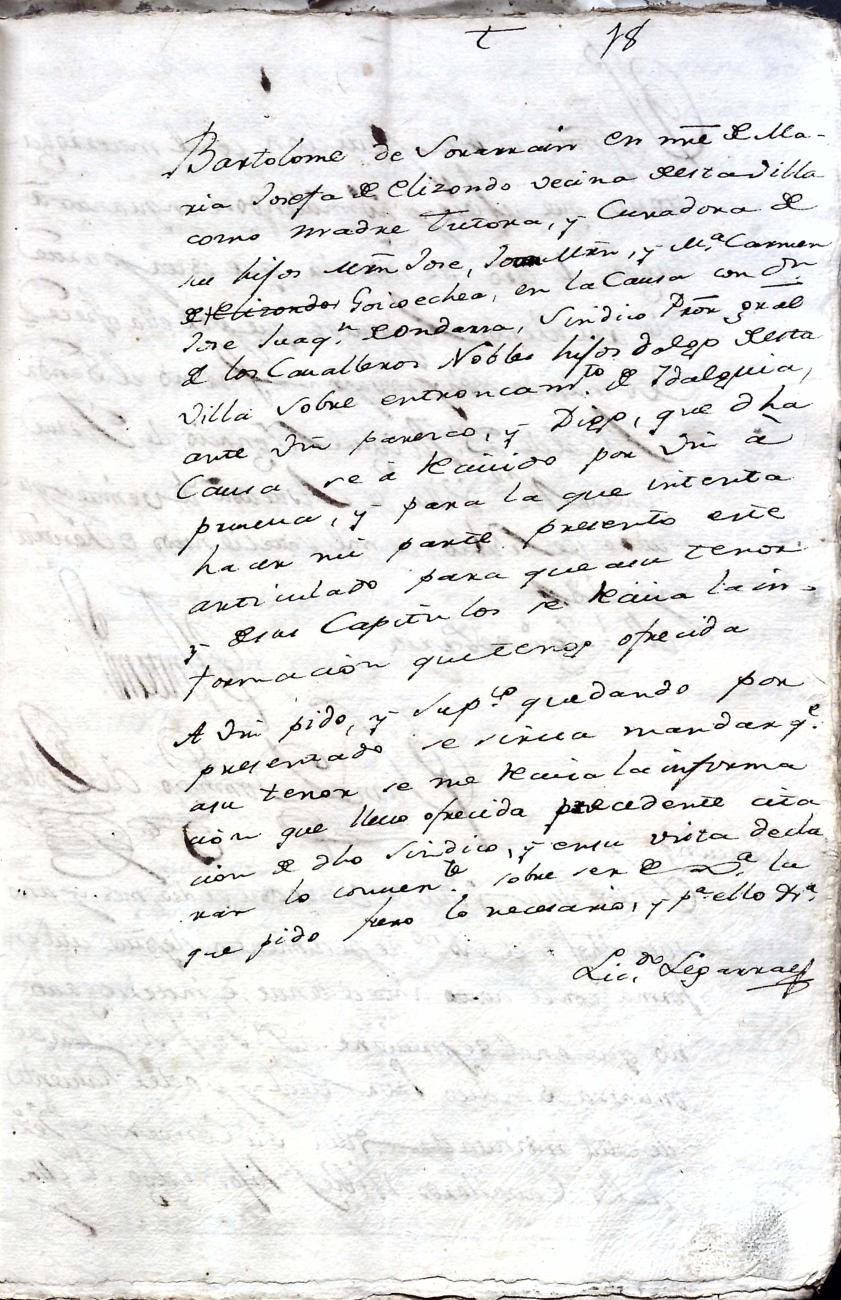 t 18
Bartolome de Sorarrain en nre de Ma-
ria Josefa de Elizondo vecina desta villa
como madre Tutora, y Curadora de
su hijos Mrn Jose, Joan Mrn, y Ma. Carmen
de Elizondo Goicoechea, en la Causa con Dn.
Jose Juaqn. de Ondarra, Sindico Pror gral
de los Cavalleros Nobles hijos dalgo desta
villa sobre entroncamto. de Idalguia,
ante Vm parezco, y Digo, que dha
Causa se à Recivido por Vm à
prueva, y para la que intenta
hacer mi parte presento este
articulado para que asu tenor
y desus Capitulos se Reciva la in-
formacion quetengo ofrecida
A Vm pido, y supco quedando por
presentado se sirva mandar qe.
asu tenor se me Reciva la informa
cion que llevo ofrecida precedente cita
cion de dho Sindico, y ensu vista decla
rar lo convente. sobre ser de Jª. lo
que pido juro lo necesario, y pa. ello &ra.
Licdo. Legarra